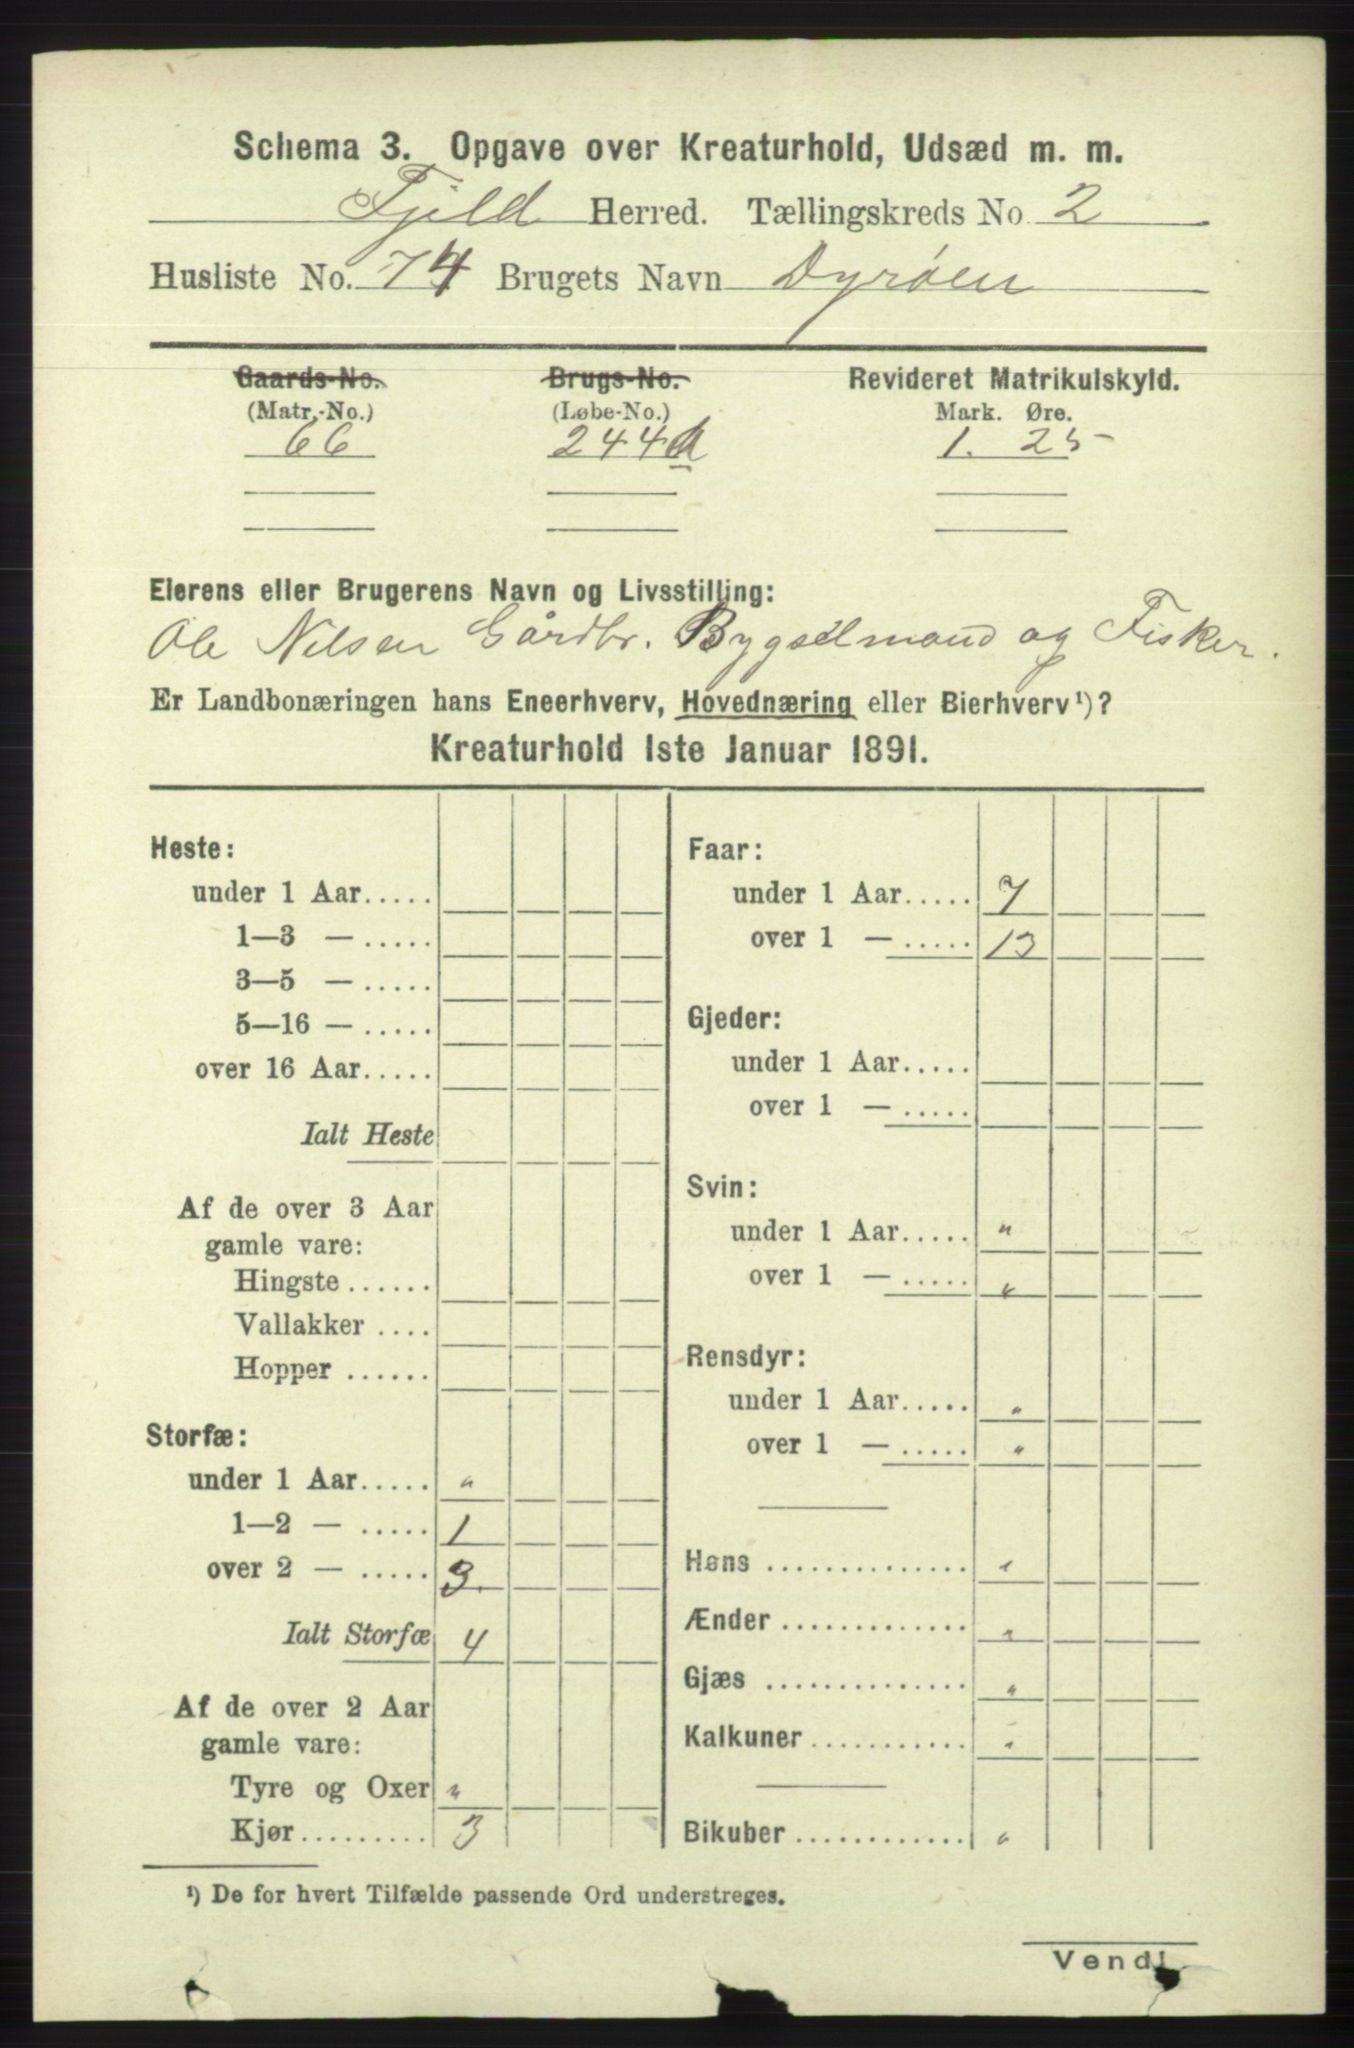 Schema 3. Opgave over Kreaturhold, Udsæd m. m.
Fjeld Herred. Tællingskreds No. 2
Husliste No. 74 Brugets Navn Dyrøen
Gaards-No. Brugs-No. Revideret Matrikulskyld.
(Matr.-No.) (Løbe-No.) Mark. Øre.
66 244 1. 25
Eierens eller Brugerens Navn og Livsstilling:
Ole Nilsen Gårdbr. Bygselmand og Fisker.
Er Landbonæringen hans Eneerhverv, Hovednæring eller Bierhverv¹)?
Kreaturhold 1ste Januar 1891.
Heste:
under 1 Aar.....
1—3 — .....
3—5 — .....
5—16 — .....
over 16 Aar.....
Ialt Heste
Af de over 3 Aar
gamle vare:
Hingste ......
Vallakker ....
Hopper ......
Storfæ:
under 1 Aar..... "
1—2 — ..... 1
over 2 — ..... 3
Ialt Storfæ 4
Af de over 2 Aar
gamle vare:
Tyre og Oxer "
Kjør......... 3
Faar:
under 1 Aar..... 7
over 1 — ..... 13
Gjeder:
under 1 Aar.....
over 1 — .....
Svin:
under 1 Aar..... "
over 1 — ..... "
Rensdyr:
under 1 Aar..... "
over 1 — ..... "
Høns .............. "
Ænder ............. "
Gjæs .............. "
Kalkuner ........... "
Bikuber ............. "
¹) De for hvert Tilfælde passende Ord understreges.
Vend!